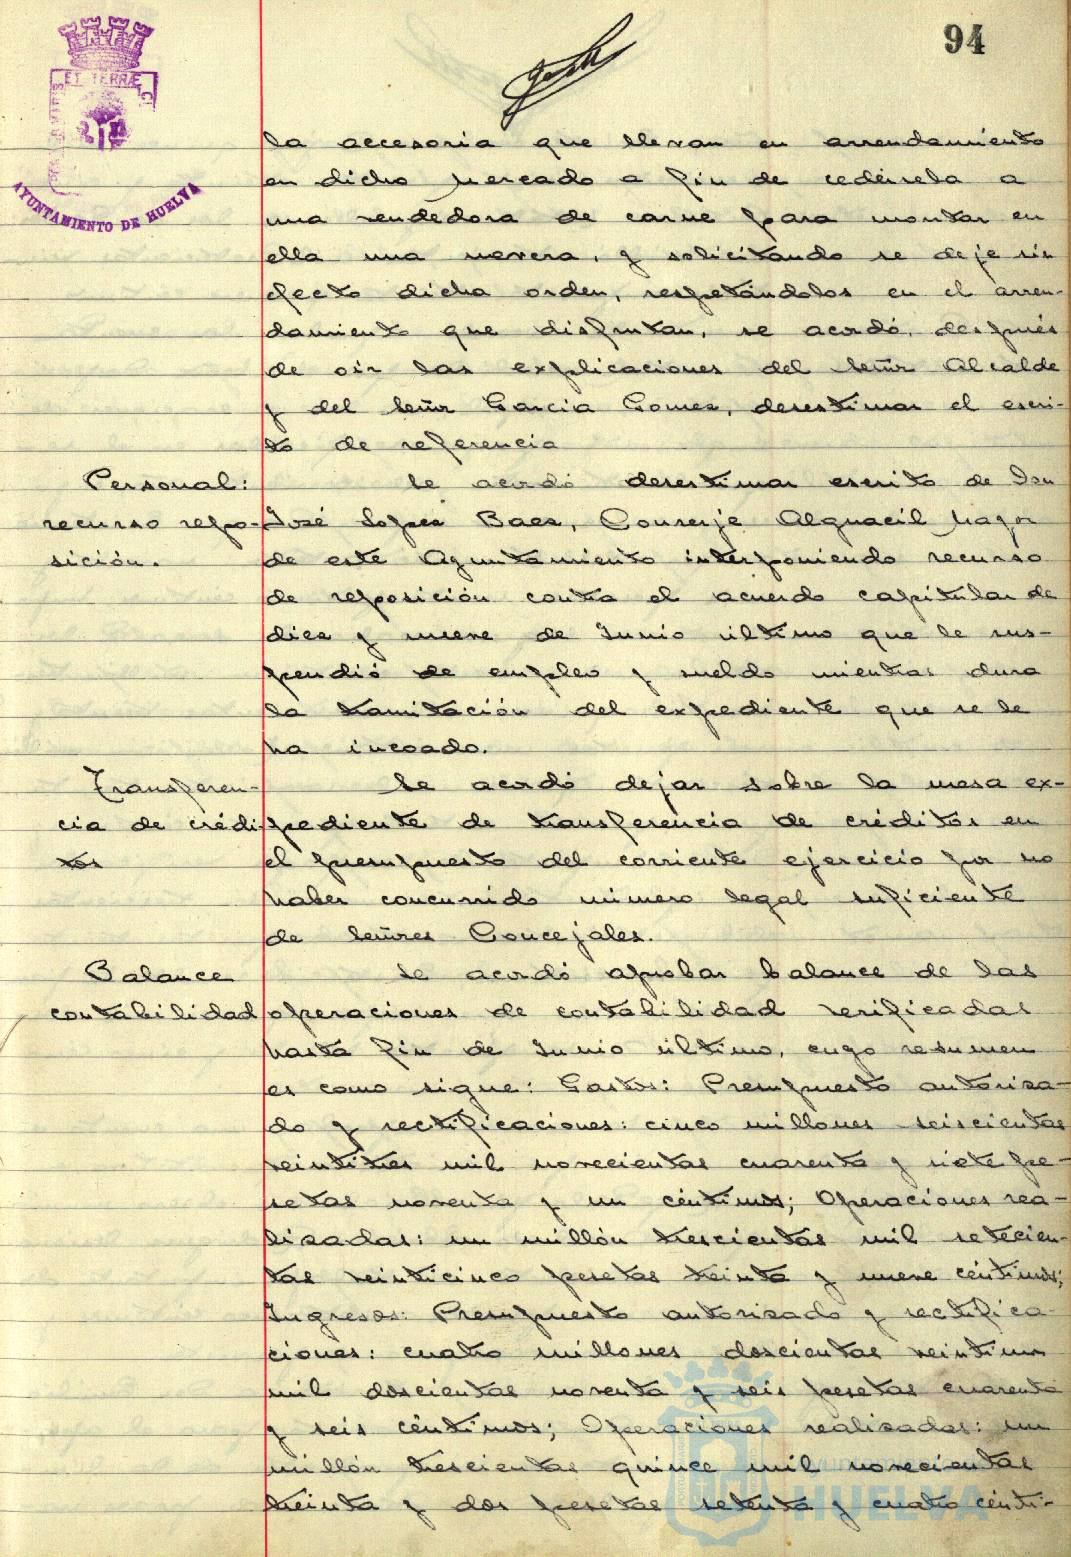 94
ET TERRÆ
AYUNTAMIENTO DE HUELVA
la accesoria que llevan en arrendamiento
en dicho Mercado a fin de cedérsela a
una vendedora de carne para montar en
ella una nevera, y solicitando se deje sin
efecto dicha orden, respetándolos en el arren-
damiento que disfrutan, se acordó, después
de oir las explicaciones del Señor Alcalde
y del Señor Garcia Gomez, desestimar el escri-
to de referencia
Personal:
recurso repo-
sición.
Se acordó desestimar escrito de Don
José Lopez Baez, Conserje Alguacil Mayor
de este Ayuntamiento interponiendo recurso
de reposición contra el acuerdo capitular de
diez y nueve de Junio último que le sus-
pendió de empleo y sueldo mientras dura
la tramitación del expediente que se le
ha incoado.
Transferen-
cia de crédi
tos
Se acordó dejar sobre la mesa ex-
pediente de transferencia de créditos en
el presupuesto del corriente ejercicio por no
haber concurrido número legal suficiente
de Señores Concejales.
Balance
contabilidad
Se acordó aprobar balance de las
operaciones de contabilidad verificadas
hasta fin de Junio último, cuyo resumen
es como sigue: Gastos: Presupuesto autoriza-
do y rectificaciones: cinco millones seiscientas
veintitres mil novecientas cuarenta y siete pe-
setas noventa y un céntimos; Operaciones rea-
lizadas: un millón trescientas mil setecien-
tas veinticinco pesetas treinta y nueve céntimos;
Ingresos: Presupuesto autorizado y rectifica-
ciones: cuatro millones doscientas veintiuna
mil doscientas noventa y seis pesetas cuarenta
y seis céntimos; Operaciones realizadas: un
millón trescientas quince mil novecientas
treinta y dos pesetas setenta y cuatro cénti-
HUELVA